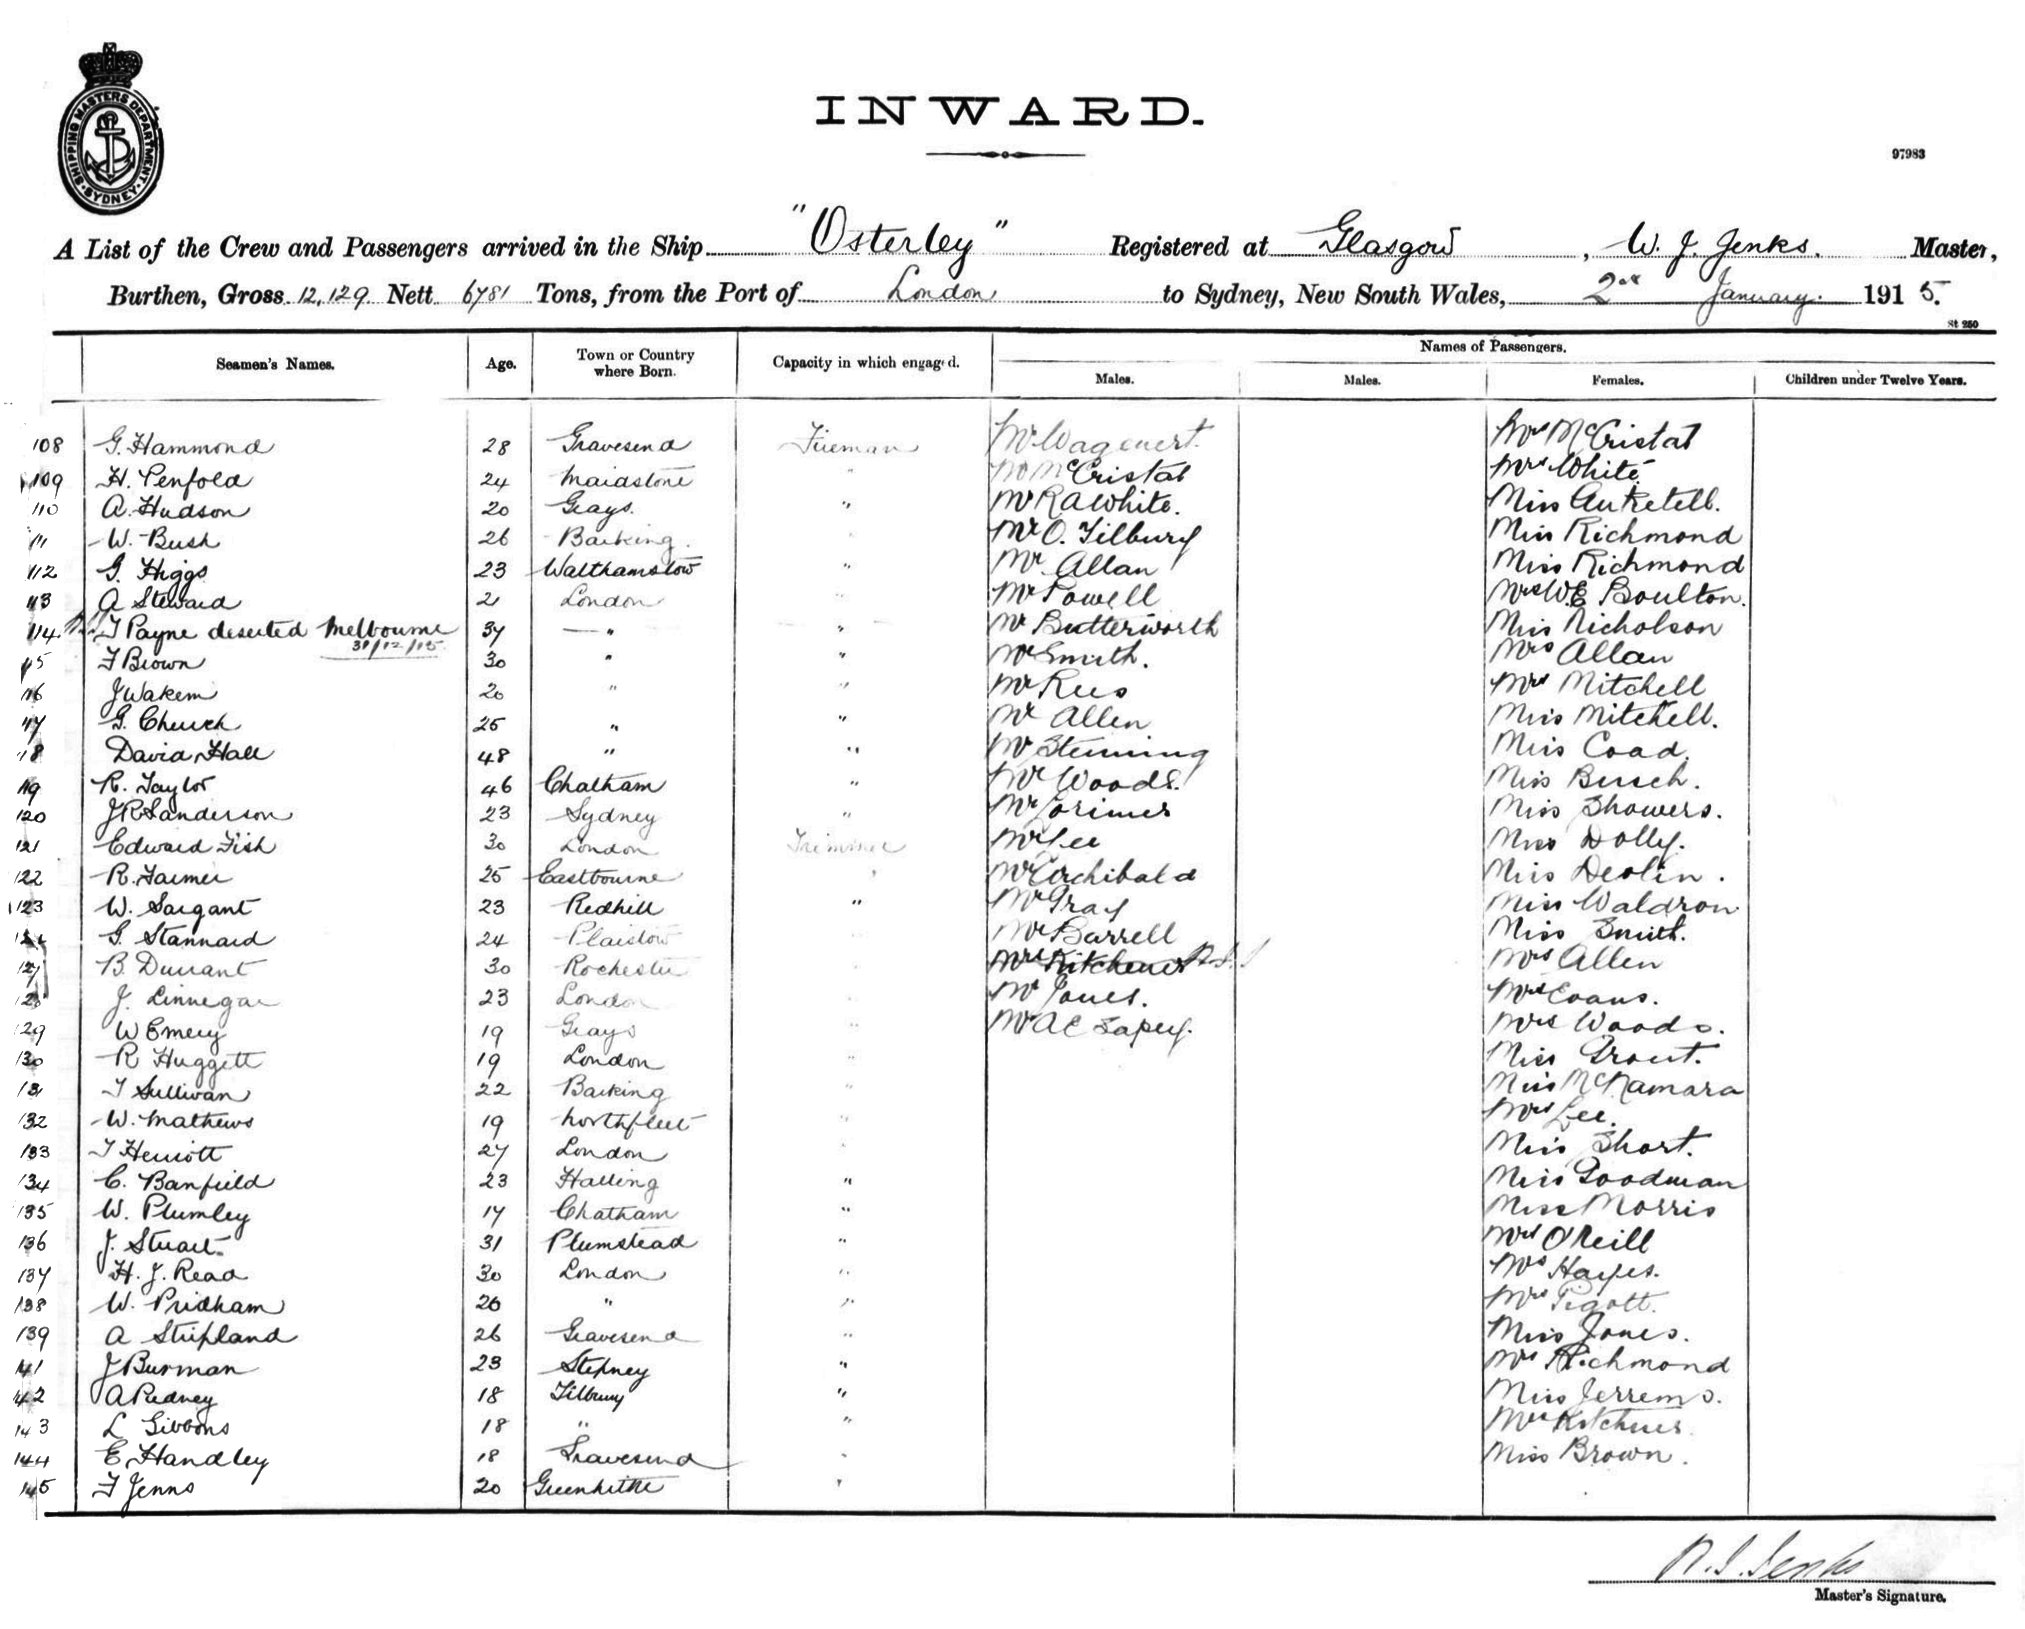 SHIPPING MASTERS DEPARTMENT. SYDNEY
INWARD.
97983
A List of the Crew and Passengers arrived in the Ship "Osterley" Registered at Glasgow, W. J. Jenks. Master,
Burthen, Gross 12,129 Nett 6781 Tons, from the Port of London to Sydney, New South Wales, 2nd January. 1915.
St 250
Seamen's Names. Age. Town or Country where Born. Capacity in which engaged. Names of Passengers.
Males. Males. Females. Children under Twelve Years.
108 G. Hammond 28 Gravesend Fireman Mr Wagenert. Mrs McCristal
109 H. Penfold 24 Maidstone " Mr McCristal Mrs White
110 A. Hudson 20 Grays. " Mr R A White. Miss Auketell.
111 W. Bush 26 Barking. " Mr O. Tilbury Miss Richmond
112 G. Higgs 23 Walthamstow " Mr Allan Miss Richmond
113 A Steward 21 London " Mr Powell Mrs W E Boulton.
114 T Payne deserted Melbourne 31/12/15 37 " " Mr Butterworth Miss Nicholson
115 F Brown 30 " " Mr Smith. Mrs Allan
116 J Wakem 20 " " Mr Rees Mrs Mitchell
117 G. Church 25 " " Mr Allen Miss Mitchell.
118 David Hall 48 " " Mr Stenning Miss Coad.
119 R. Taylor 46 Chatham " Mr Woods. Miss Busch.
120 J R Sanderson 23 Sydney " Mr Lorimer Miss Showers.
121 Edward Fish 30 London Trimmer Mr Lee Miss Dolly.
122 R. Farmer 25 Eastbourne " Mr Archibald Miss Devlin.
123 W. Sargant 23 Redhill " Mr Gray Miss Waldron
G. Stannard 24 Plaistow Mr Barrell Miss Smith.
127 B. Durrant 30 Rochester Mrs Kitchener Mrs Allen
128 J. Linnegar 23 London Mr Jones. Mrs Evans.
129 W Emery 19 Grays " Mr A E Sapey. Mrs Woods.
130 R Huggett 19 London " Miss Grout.
131 T Sullivan 22 Barking " Miss McNamara
132 W. Mathews 19 Northfleet " Mrs Lee.
133 T Herriott 27 London " Miss Short.
134 C. Banfield 23 Halling " Miss Goodman
135 W. Plumley 17 Chatham " Miss Morris
136 J. Stuart 31 Plumstead " Mrs O'Neill
137 H. J. Read 30 London " Mrs Hayes.
138 W. Pridham 26 " " Mrs Pigott.
139 A Stripland 26 Gravesend " Miss Jones.
141 J Burman 23 Stepney " Mrs Richmond
142 A Pedney 18 Tilbury " Miss Jerrems.
143 L Gibbons 18 " " Mrs Kitchener
144 E Handley 18 Gravesend " Miss Brown.
145 F Jenns 20 Greenhithe "
Master's Signature.